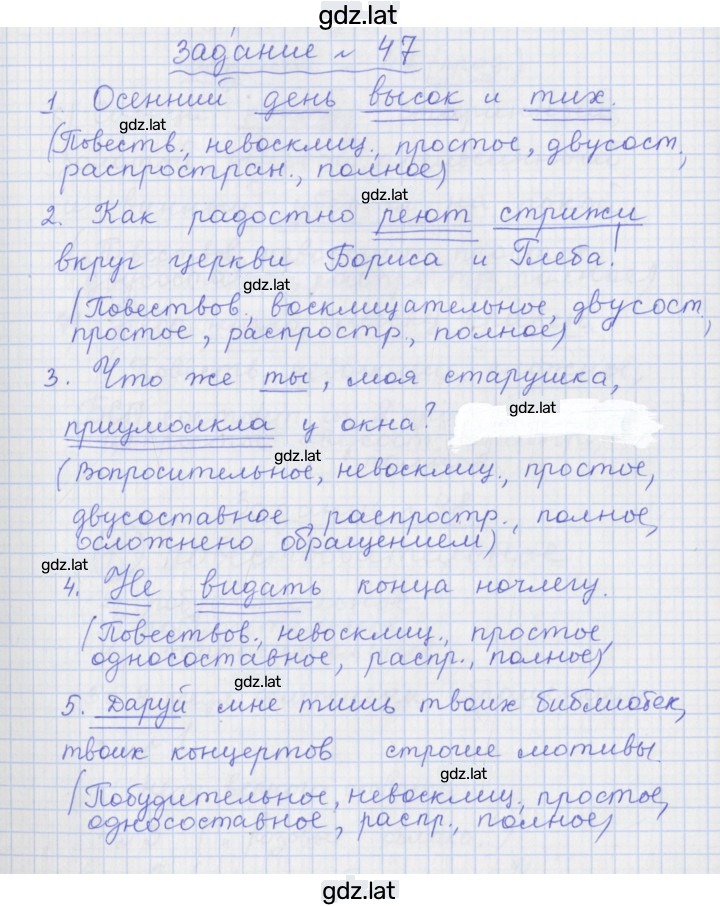 gdz.lat
Задание № 47
1. Осенний день высок и тих.
gdz.lat
(Повеств., невосклиц., простое, двусост.,
распростран., полное)
gdz.lat
2. Как радостно реют стрижи
вкруг церкви Бориса и Глеба!
gdz.lat
(Повествов., восклицательное, двусост.,
простое, распростр., полное)
3. Что же ты, моя старушка,
gdz.lat
приумолкла у окна?
gdz.lat
(Вопросительное, невосклиц., простое,
двусоставное, распростр., полное,
осложнено обращением)
gdz.lat
4. Не видать конца ночлегу.
(Повествов., невосклиц., простое,
односоставное, распр., полное)
gdz.lat
5. Даруй мне тишь твоих библиотек,
твоих концертов строгие мотивы.
gdz.lat
(Побудительное, невосклиц., простое,
односоставное, распр., полное)
gdz.lat